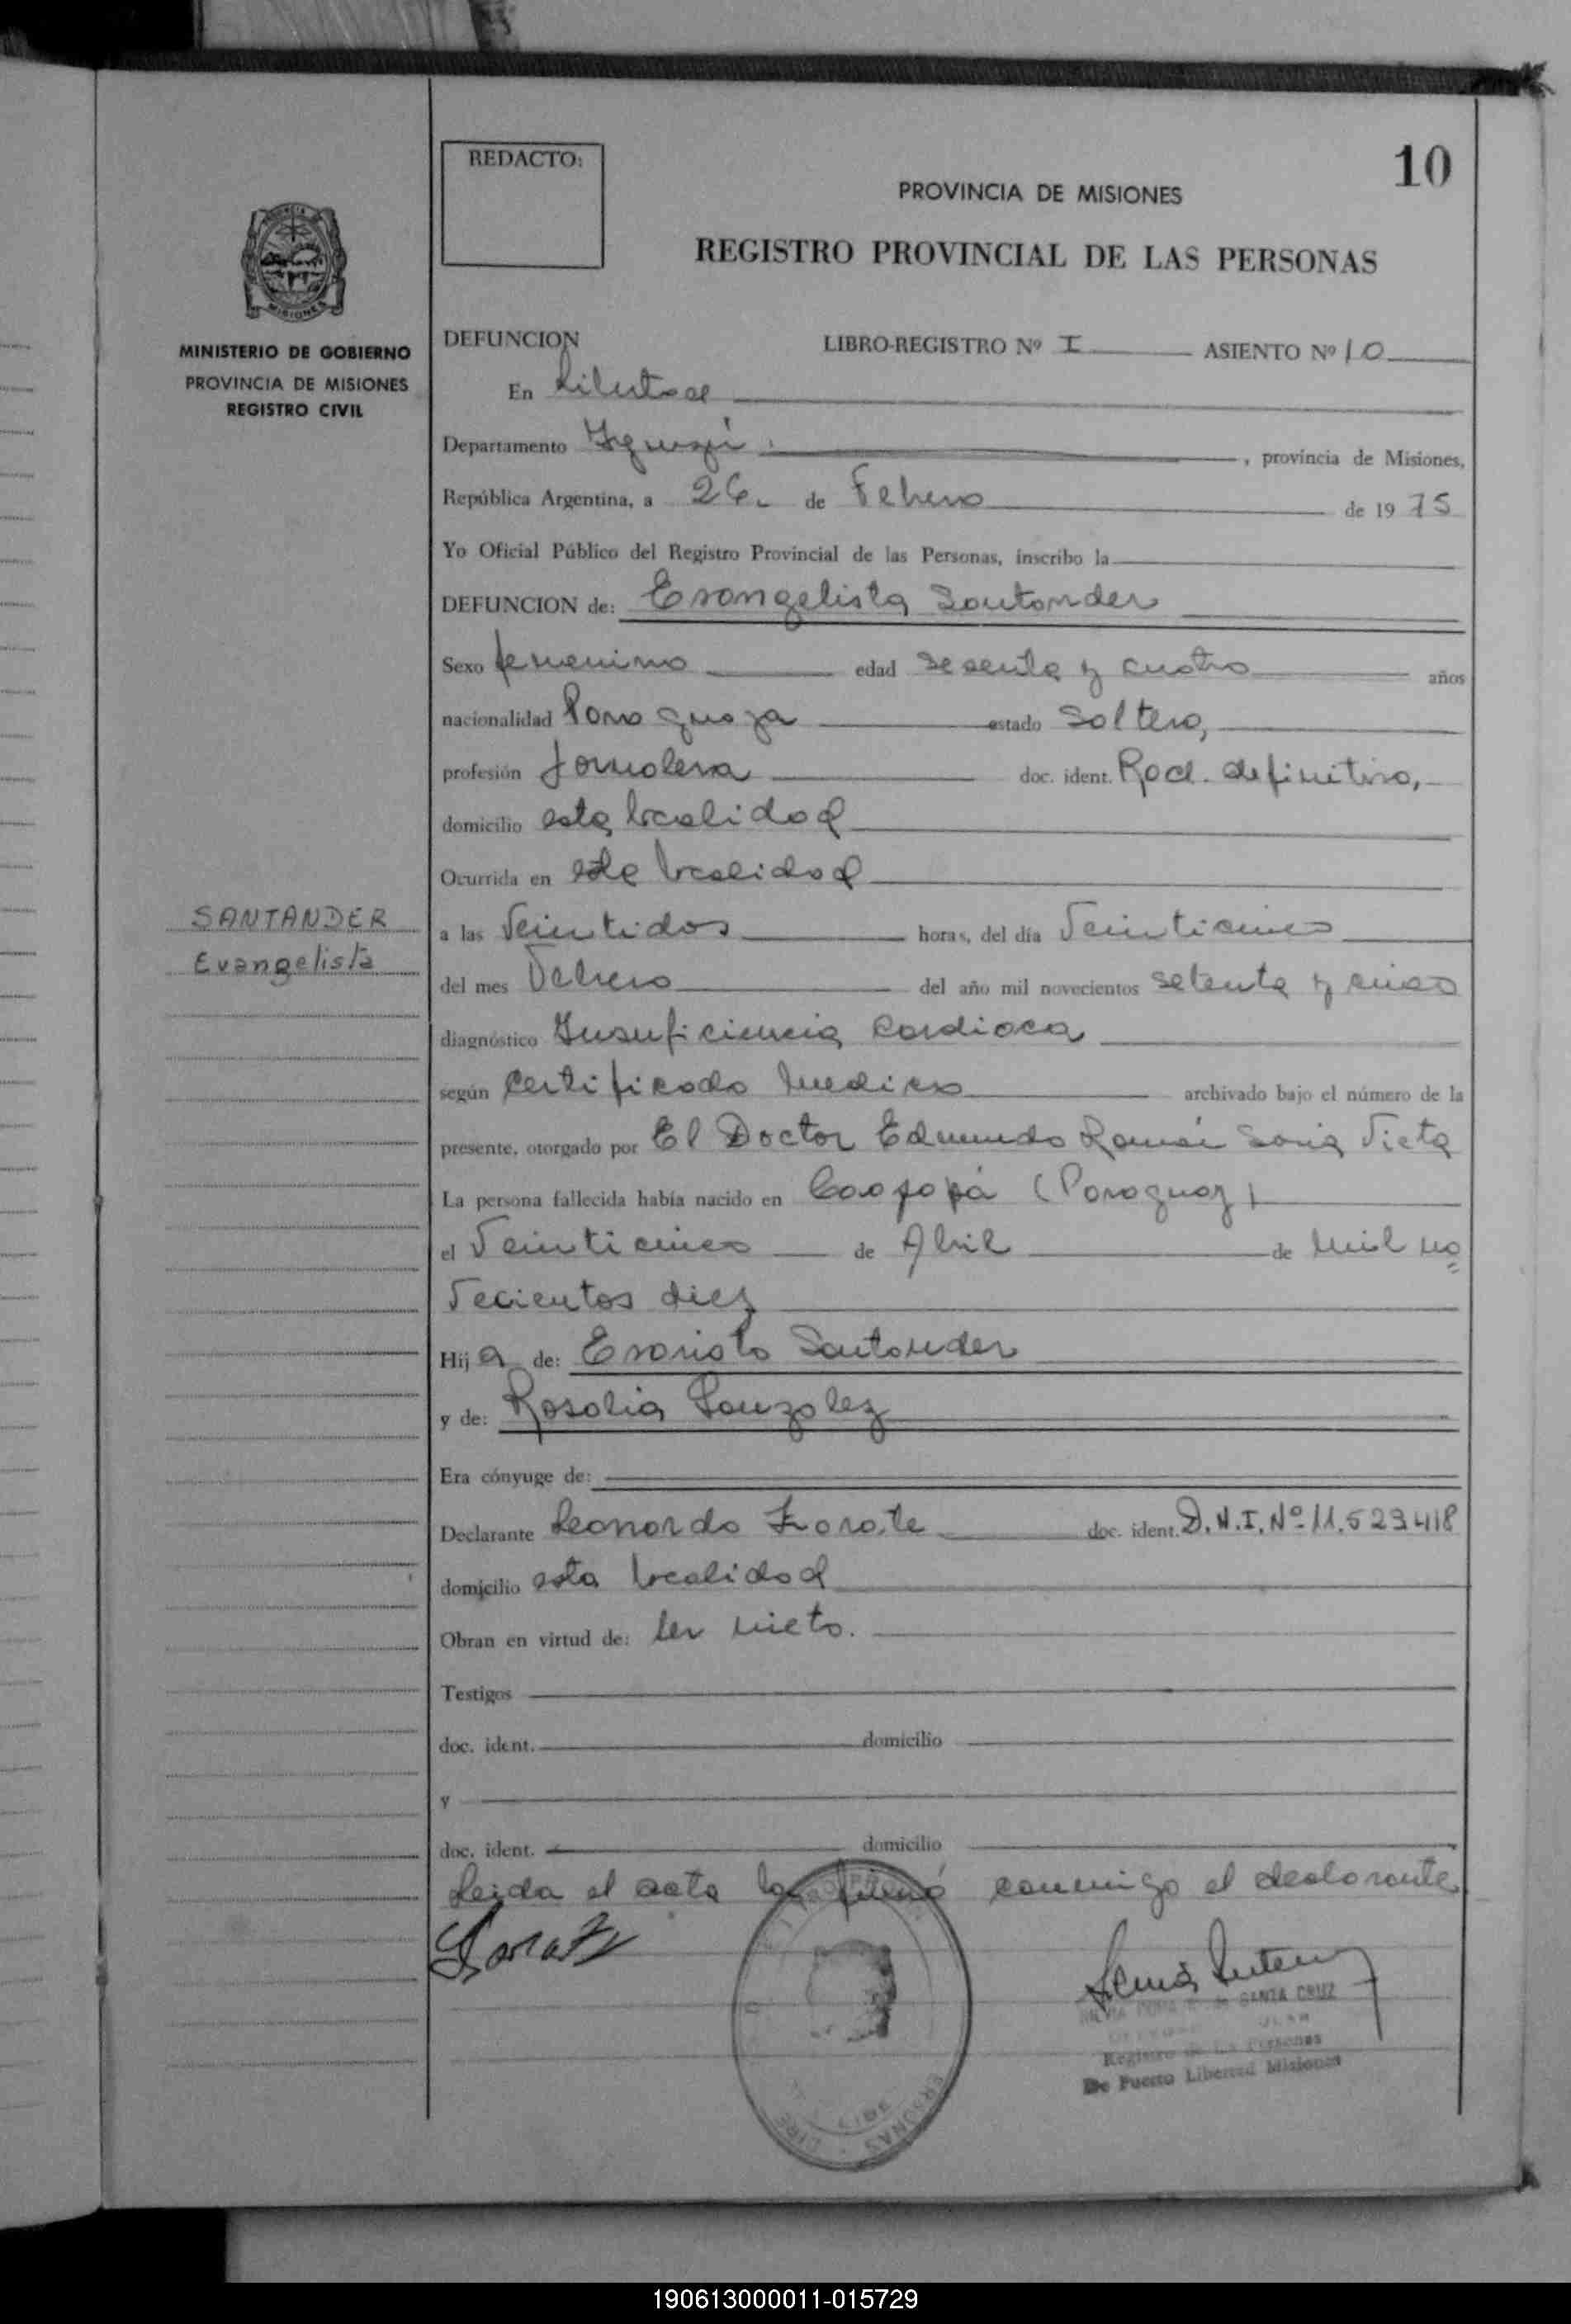 10
REDACTO:
PROVINCIA DE MISIONES
REGISTRO PROVINCIAL DE LAS PERSONAS
MISIONES
MINISTERIO DE GOBIERNO
PROVINCIA DE MISIONES
REGISTRO CIVIL
DEFUNCION LIBRO-REGISTRO Nº I ASIENTO Nº 10
En Libertad
Departamento Iguazú , provincia de Misiones,
República Argentina, a 26 de Febrero de 19 75
Yo Oficial Público del Registro Provincial de las Personas, inscribo la
DEFUNCION de: Evangelista Santander
Sexo femenino edad sesenta y cuatro años
nacionalidad Paraguaya estado soltera,
profesión Jornalera doc. ident. Rad. definitiva,
domicilio esta localidad
Ocurrida en esta localidad
SANTANDER
Evangelista
a las Veintidos horas, del día Veinticinco
del mes Febrero del año mil novecientos setenta y cinco
diagnóstico Insuficiencia Cardiaca
según Certificado Medico archivado bajo el número de la
presente, otorgado por El Doctor Edmundo Ramón Soria Vieta
La persona fallecida había nacido en Caazapá (Paraguay)
el Veinticinco de Abril de mil no
vecientos diez
Hij a de: Evaristo Santander
y de: Rosalia Gonzalez
Era cónyuge de:
Declarante Leonardo Zarate doc. ident. D.N.I. Nº 11.523418
domicilio esta localidad
Obran en virtud de: ser nieto.
Testigos
doc. ident. domicilio
y
doc. ident. domicilio
Leida el acta la firmó conmigo el declarante
Zarate
SANTA CRUZ
Registro de las Personas
De Puerto Libertad Misiones
190613000011-015729